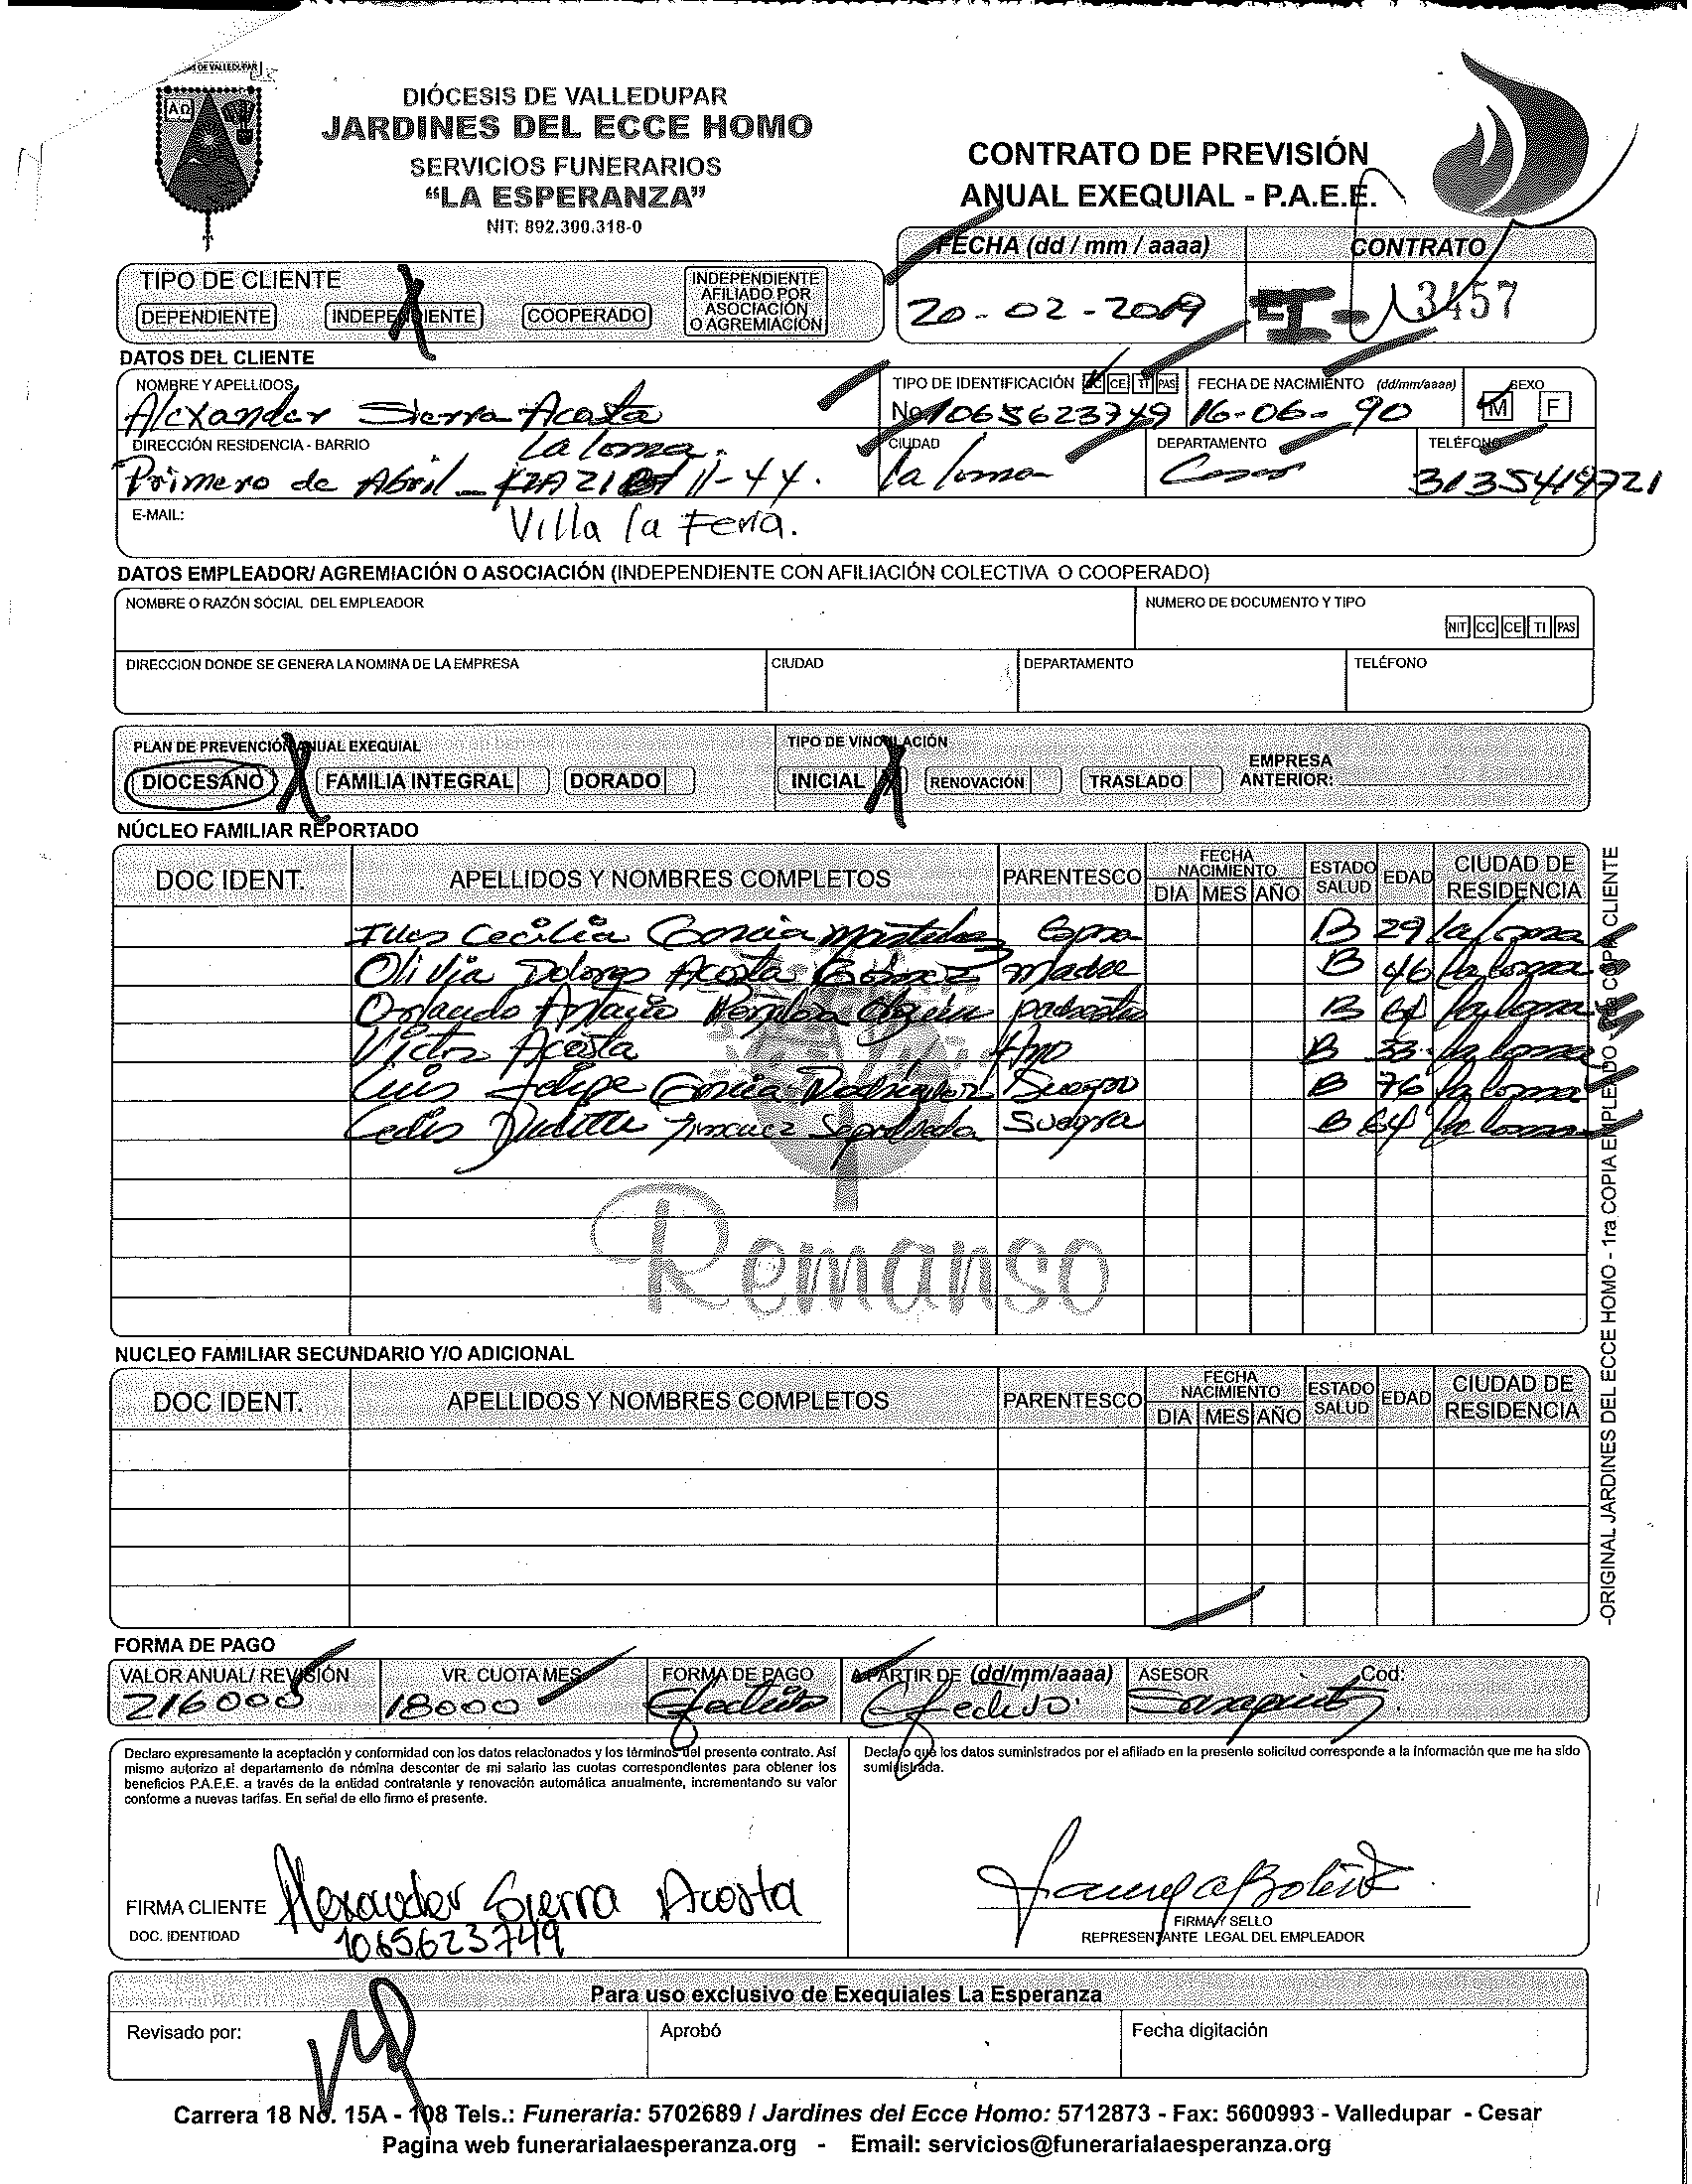 DE VALLEDUPAR
DIÓCESIS DE VALLEDUPAR
JARDINES DEL ECCE HOMO
SERVICIOS FUNERARIOS
“LA ESPERANZA”
NIT: 892.300.318-0
CONTRATO DE PREVISIÓN
ANUAL EXEQUIAL - P.A.E.E.
FECHA (dd / mm / aaaa) CONTRATO
20-02-2019 EI - 13457
TIPO DE CLIENTE
DEPENDIENTE INDEPENDIENTE X COOPERADO INDEPENDIENTE AFILIADO POR ASOCIACIÓN O AGREMIACIÓN
DATOS DEL CLIENTE
NOMBRE Y APELLIDOS TIPO DE IDENTIFICACIÓN CC CE TI PAS FECHA DE NACIMIENTO (dd/mm/aaaa) SEXO
Alexander Sierra Acosta No 1065623749 16-06-90 M F
DIRECCIÓN RESIDENCIA - BARRIO La loma. CIUDAD DEPARTAMENTO TELÉFONO
Primero de Abril - 11-44. la loma Cesar
E-MAIL: Villa la Feria.
DATOS EMPLEADOR/ AGREMIACIÓN O ASOCIACIÓN (INDEPENDIENTE CON AFILIACIÓN COLECTIVA O COOPERADO)
NOMBRE O RAZÓN SOCIAL DEL EMPLEADOR NUMERO DE DOCUMENTO Y TIPO
NIT CC CE TI PAS
DIRECCION DONDE SE GENERA LA NOMINA DE LA EMPRESA CIUDAD DEPARTAMENTO TELÉFONO
PLAN DE PREVENCIÓN ANUAL EXEQUIAL TIPO DE VINCULACIÓN
DIOCESANO X FAMILIA INTEGRAL DORADO INICIAL X RENOVACIÓN TRASLADO EMPRESA ANTERIOR:
NÚCLEO FAMILIAR REPORTADO
DOC IDENT. APELLIDOS Y NOMBRES COMPLETOS PARENTESCO FECHA NACIMIENTO DIA MES AÑO ESTADO SALUD EDAD CIUDAD DE RESIDENCIA
Cecilia Garcia Esposa B 29 la loma
Olivia Dolores Acosta Gómez madre B 46 la loma
Orlando padrastro B la loma
Victor Acosta Hno B 33 la loma
Luis Felipe Garcia Rodriguez Suegro B 76 la loma
Judith Jimenez Sepulveda Suegra B 64 la loma
Remanso
NUCLEO FAMILIAR SECUNDARIO Y/O ADICIONAL
DOC IDENT. APELLIDOS Y NOMBRES COMPLETOS PARENTESCO FECHA NACIMIENTO DIA MES AÑO ESTADO SALUD EDAD CIUDAD DE RESIDENCIA
-ORIGINAL JARDINES DEL ECCE HOMO - 1ra COPIA EMPLEADO COPIA CLIENTE
FORMA DE PAGO
VALOR ANUAL/ REVISIÓN VR. CUOTA MES FORMA DE PAGO A PARTIR DE (dd/mm/aaaa) ASESOR Cod:
216000 18000 Efectivo Efectivo
Declaro expresamente la aceptación y conformidad con los datos relacionados y los términos del presente contrato. Así
mismo autorizo al departamento de nómina descontar de mi salario las cuotas correspondientes para obtener los
beneficios P.A.E.E. a través de la entidad contratante y renovación automática anualmente, incrementando su valor
conforme a nuevas tarifas. En señal de ello firmo el presente.
Declaro que los datos suministrados por el afiliado en la presente solicitud corresponde a la información que me ha sido
suministrada.
FIRMA CLIENTE Alexander Sierra Acosta
DOC. IDENTIDAD 1065623749
FIRMA Y SELLO
REPRESENTANTE LEGAL DEL EMPLEADOR
Para uso exclusivo de Exequiales La Esperanza
Revisado por: Aprobó Fecha digitación
Carrera 18 No. 15A - 108 Tels.: Funeraria: 5702689 / Jardines del Ecce Homo: 5712873 - Fax: 5600993 - Valledupar - Cesar
Pagina web funerarialaesperanza.org - Email: servicios@funerarialaesperanza.org